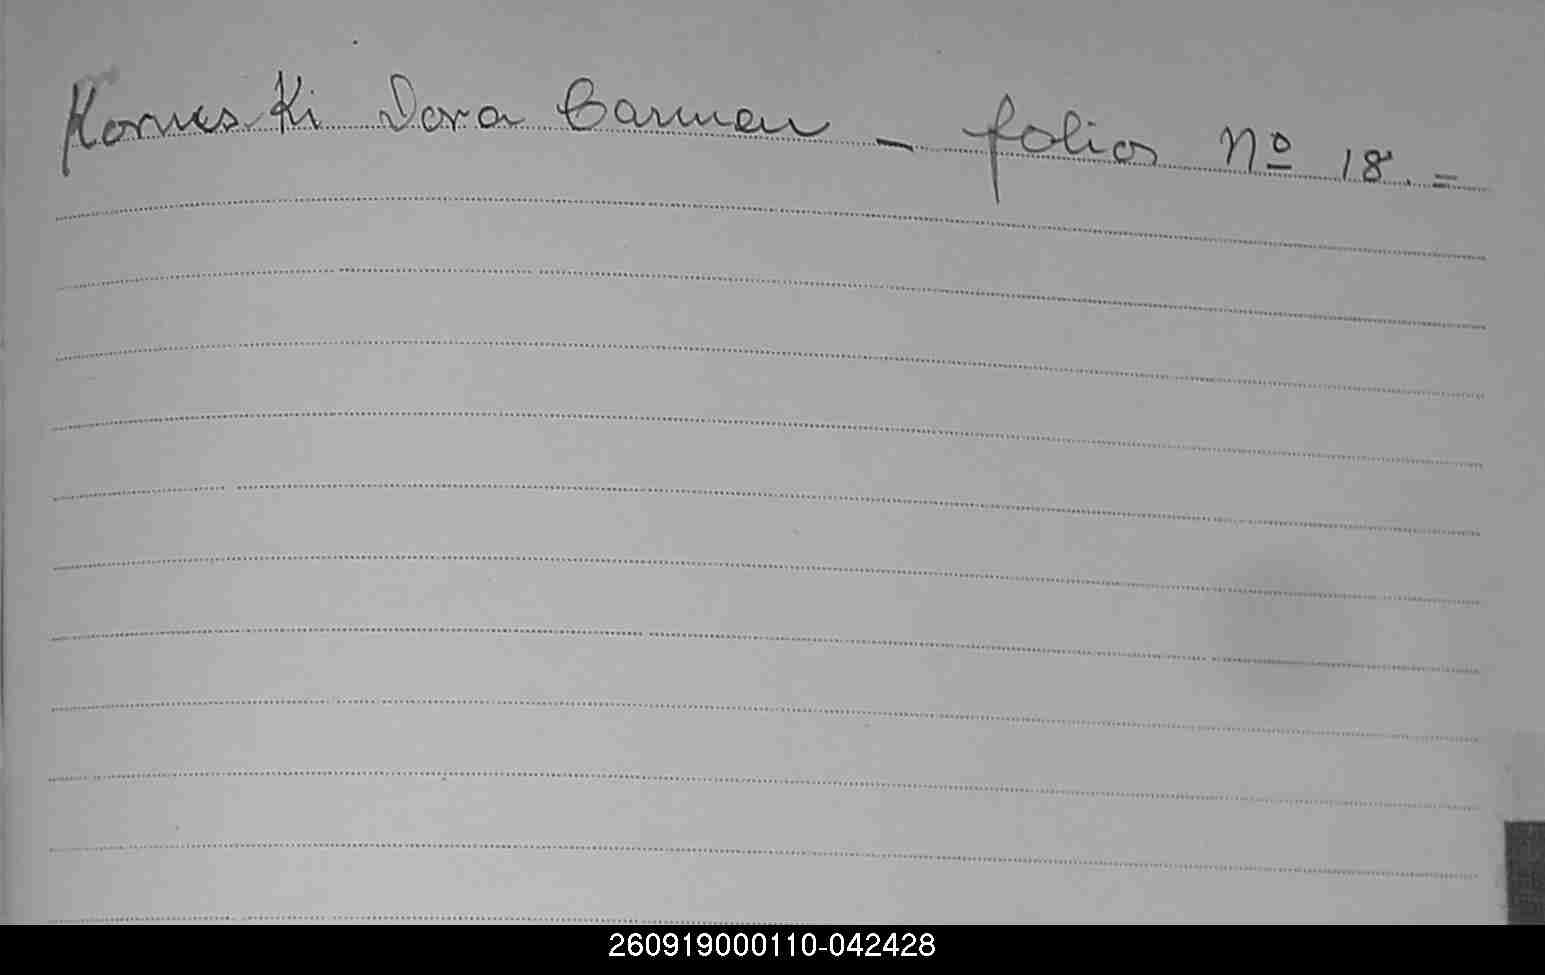 Dora Carmen - folios Nº 18.=
260919000110-042428